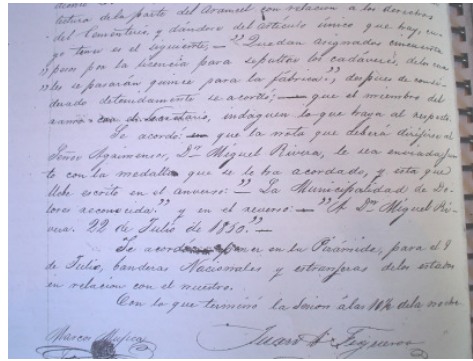 lectura dela parte del Arancel con relacion a los derechos
del Cementerio, y dándose del artículo único que hay, cu-
yo tenor es el siguiente, — "Quedan asignados cincuenta
" pesos por la licencia para sepultar los cadaveres, delos cua
" les se pararán quince para la fábrica:", despues de consi-
derado detenidamente se acordó; — que el miembro del
ramo Secretario, indaguen lo que haya al respecto.
Se acordó: que la nota que deberá dirijirse al
Señor Agrimensor, Dn Miguel Rivera, le sea enviada jun
te con la medalla que se le ha acordado, y esta que
lleve escrito en el anverso: — La Municipalidad de Do-
lores reconocida." y en el reverso: — "A Dn Miguel Ri-
vera. 22 de Julio de 1850." —
Se acordó poner en la Pirámide, para el 9
de Julio, banderas Nacionales y estranjeras delos estados
en relacion con el nuestro.
Con lo que terminó la Sesion álas 10½ dela noche
Marcos Mujica Juan A. Figueroa